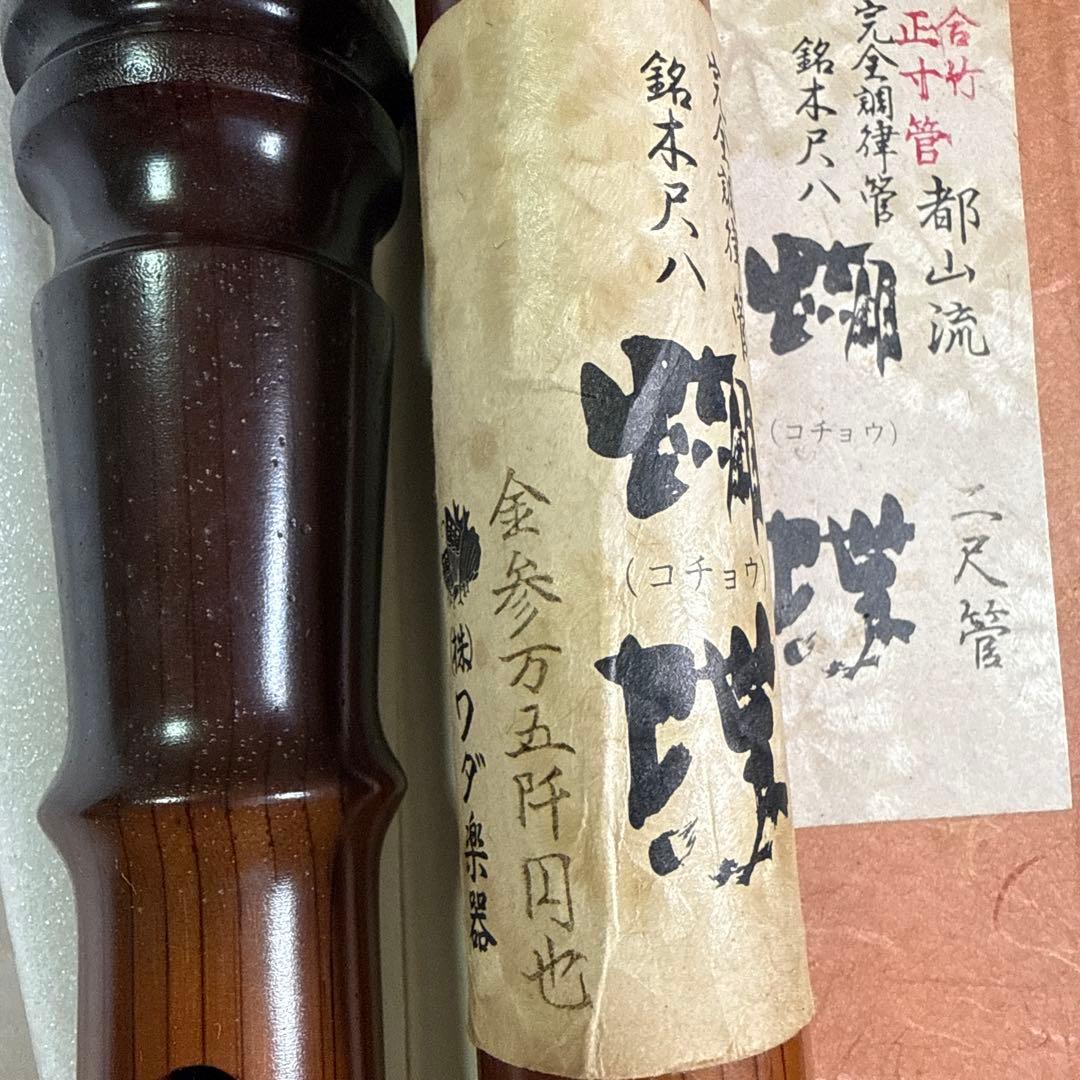 合竹
正寸管
完全調律管
銘木尺八
都山流
蝴
(コチョウ)
蝶
二尺管
完全調律管
銘木尺八
蝴
(コチョウ)
蝶
金参万五阡円也
㈱ワダ楽器